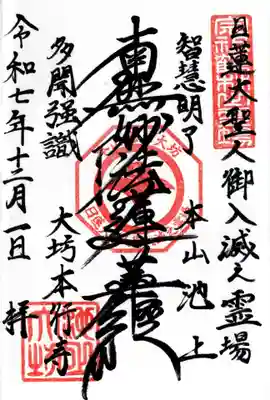 日蓮大聖人御入滅之霊場
智慧明了 本山池上
南無妙法蓮華経
多聞強識 大坊本行寺
令和七年十二月一日 拝